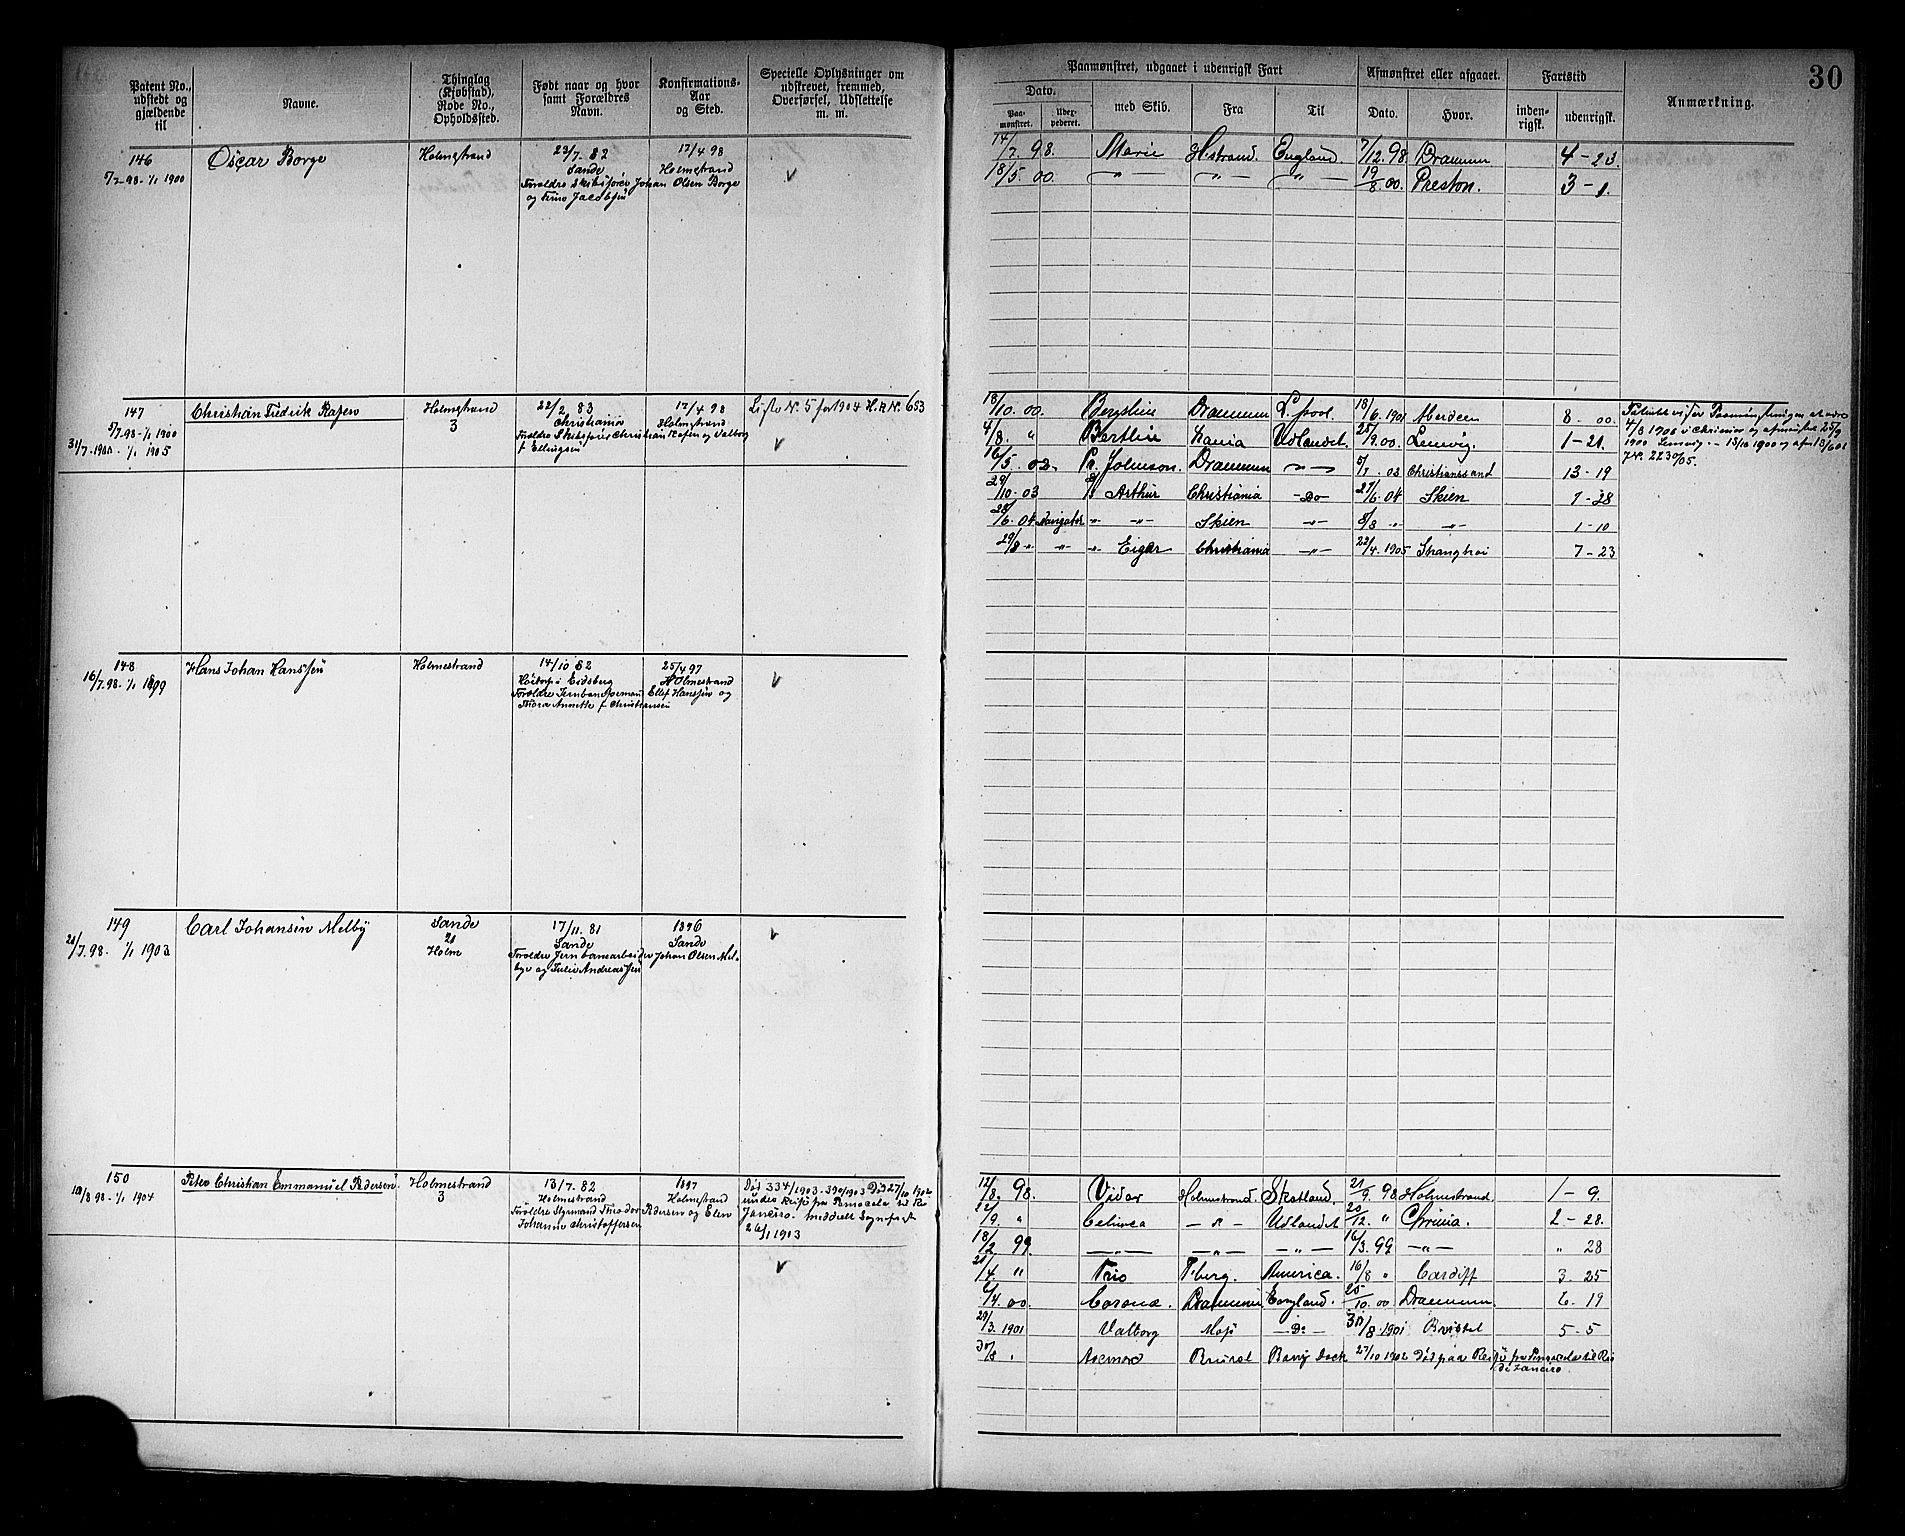 30
Patent No., udstedt og gjældende til
Navne.
Thinglag (Kjøbstad), Rode No., Opholdssted.
Født naar og hvor samt Forældres Navn.
Konfirmations-Aar og Sted.
Specielle Oplysninger om udskrevet, fremmed, Overførsel, Udslettelse m. m.
Paamønstret, udgaaet i udenrigsk Fart
Afmønstret eller afgaaet.
Fartstid
Anmærkning.
Dato.
Paa-mønstret.
Udex-pederet.
med Skib.
Fra
Til
Dato.
Hvor.
inden-rigsk.
udenrigsk.
146
5/7-98-1/1 1900
Oscar Borge
Holmestrand
23/7. 82
Sande
Forældre Skibsfører Johan Olsen Borge
17/4 98
Holmestrand
14/7. 98. Marie H.strand. England. 7/12. 98. Drammen 4-23.
18/5. 00. -"- -"- -"- 19/8. 00. Preston. 3-1.
147
5/7. 98-1/1 1900
31/7. 1900. - 1/1 1905
Christian Fredrik Kafen
Holmestrand
3
22/2 83
Christiania
Forældre Skibsfører Christian Kafen og Valborg
f Ellingsen
17/4 98
Holmestrand
Liste No. 5 for 1904 H.R No. 653
18/10. 00. Bergslien Drammen L.pool 18/6. 1901 Aberdeen 8. 00.
4/8. " Udlandet. 25/9. 00. Lemvig. 1-21.
16/5. 02. Pr. Johnson. Drammen -"- 5/7. 03 Christianssand 13-19
29/10. 03 Arthur Christiania -Do- 27/6. 04 Skien 7-28
28/6. 04 Navigatør -"- -"- Skien -"- 8/8 -"- -"- 1-10
29/8 -"- -"- -"- Eiger Christiania -"- 22/4. 1905 Shanghai 7-23
148
16/7. 98. 1/1 1899
Hans Johan Hanssen
Holmestrand
14/10 82
Eidsberg
Forældre Jernbaneformand Ellef Hanssen og
Thora Annette f Christiansen
25/4 97
Holmestrand
149
1/1 1903
Carl Johansen Melby
Sande
21
Holm
17/11. 81
Sande
Forældre Jernbanearbeider Johan Olsen Mel-
bye og Julie Andreassen
1896
Sande
150
10/8 98. - 1/1 1904
Peter Christian Emmanuel Pedersen.
Holmestrand
3
13/7. 82
Holmestrand
Forældre Styrmand Theodor Pedersen og Elen
Johanne Christoffersen
1897
Holmestrand
Død 334/1903-390/1903 Død 27/10 1902
under Reise fra Pensacola til Rio
Janeiro. meddelt Sognepræst
26/1 1903
12/8. 98. Vidar Holmestrand. Skotland. 21/9. 98. Holmestrand. 1-9.
22/9. " -"- Udlandet 20/12. " Chrinia. 2-28.
18/2. 99. -"- -"- -"- 16/3. 99 -"- " 28
21/4. " Trio T.berg. America. 16/8 " Cardiff 3. 25
6/4. 00. Corona. Drammen England. 25/10. 00 Drammen. 6. 19
29/3. 1901 Valborg Moss -Do- 31/8. 1901 Bristol 5-5
30/8 " Barry Dock 27/10 1902 Død paa Reise fra Pensacola til Rio
de Janeiro